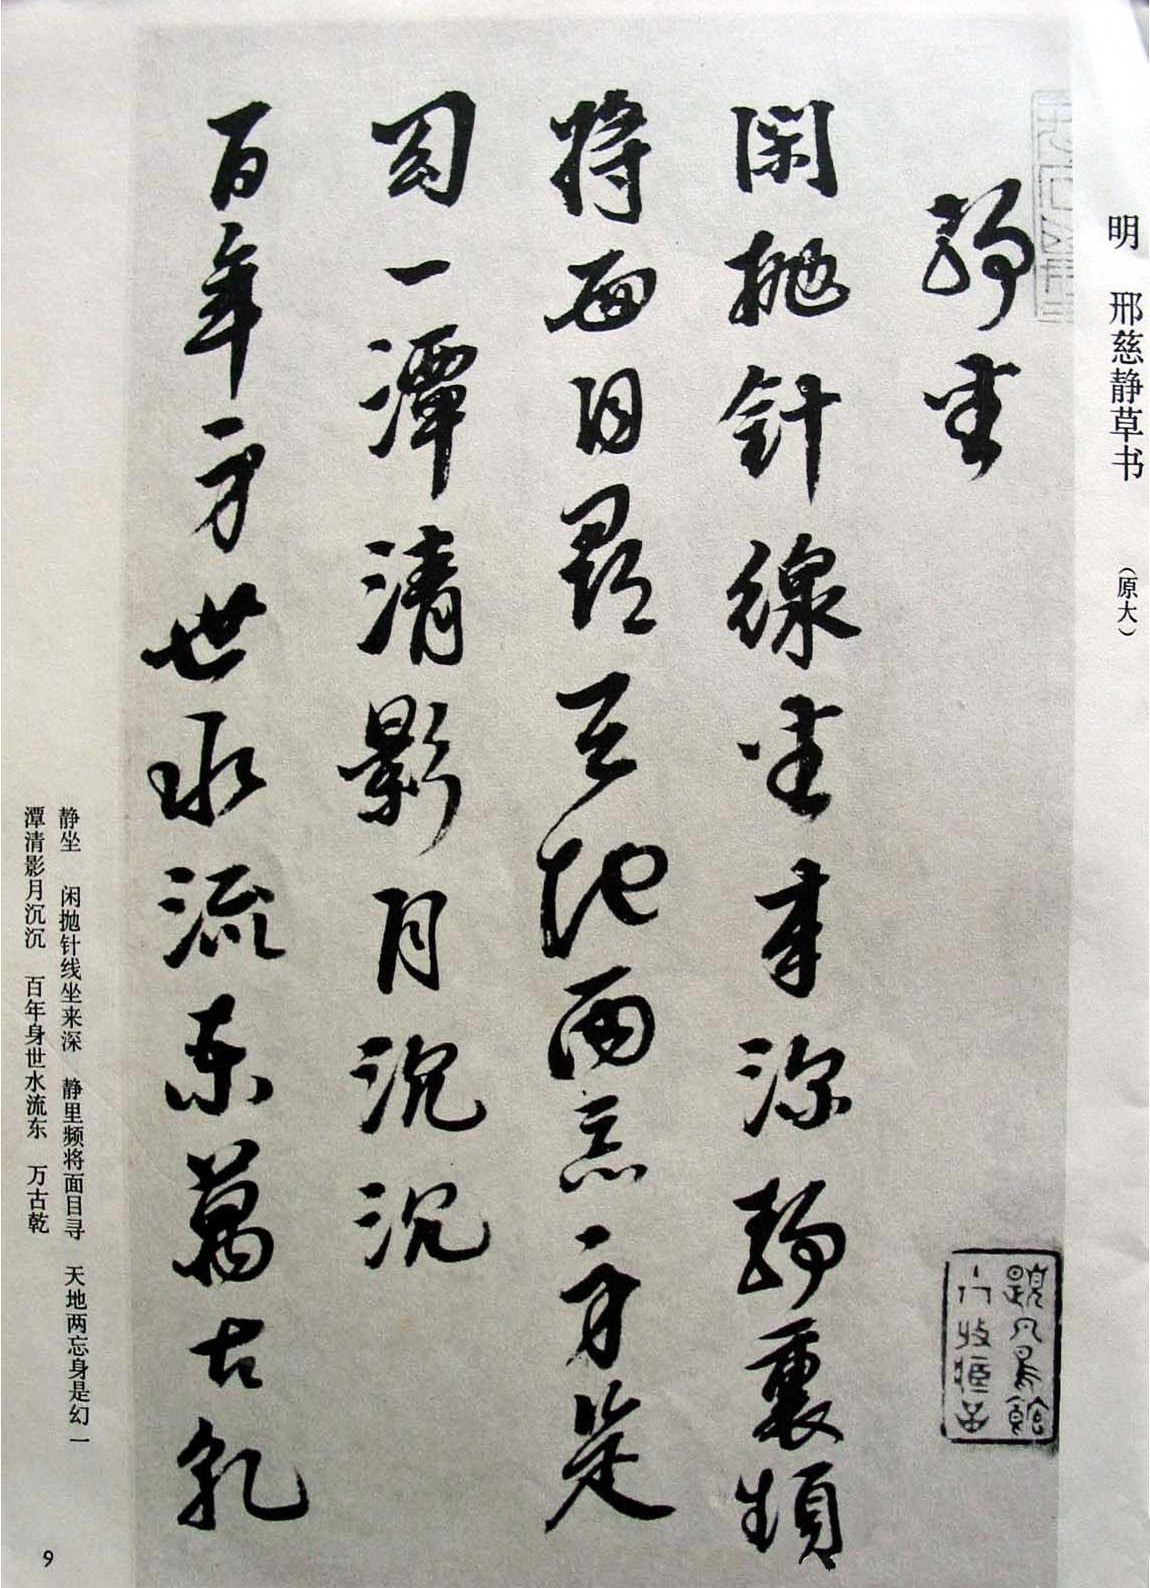 明　邢慈静草书　（原大）
静坐
闲抛针線坐来深静裏頻
将面目尋天地兩忘身是
幻一潭清影月沉沉
百年身世水流东萬古乹
静坐　闲抛针线坐来深　静里频将面目寻　天地两忘身是幻　一
潭清影月沉沉　百年身世水流东　万古乾
9